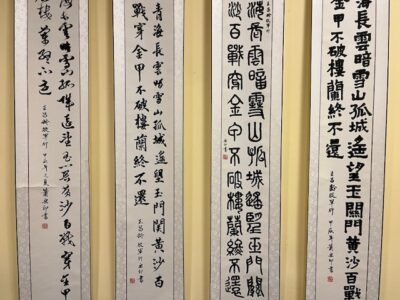 海長雲暗雪山孤城遙望玉關門黃沙百戰
金甲不破樓蘭終不還
王昌齡從軍行
海長雲暗雪山孤城遙望玉門關黃
沙百戰穿金甲不破樓蘭終不還
青海長雲暗雪山孤城遙望玉門關黃沙百
戰穿金甲不破樓蘭終不還
王昌齡從軍行
雲暗雪山孤城遙望玉門關黃沙百戰穿金甲
樓蘭終不還
王昌齡從軍行